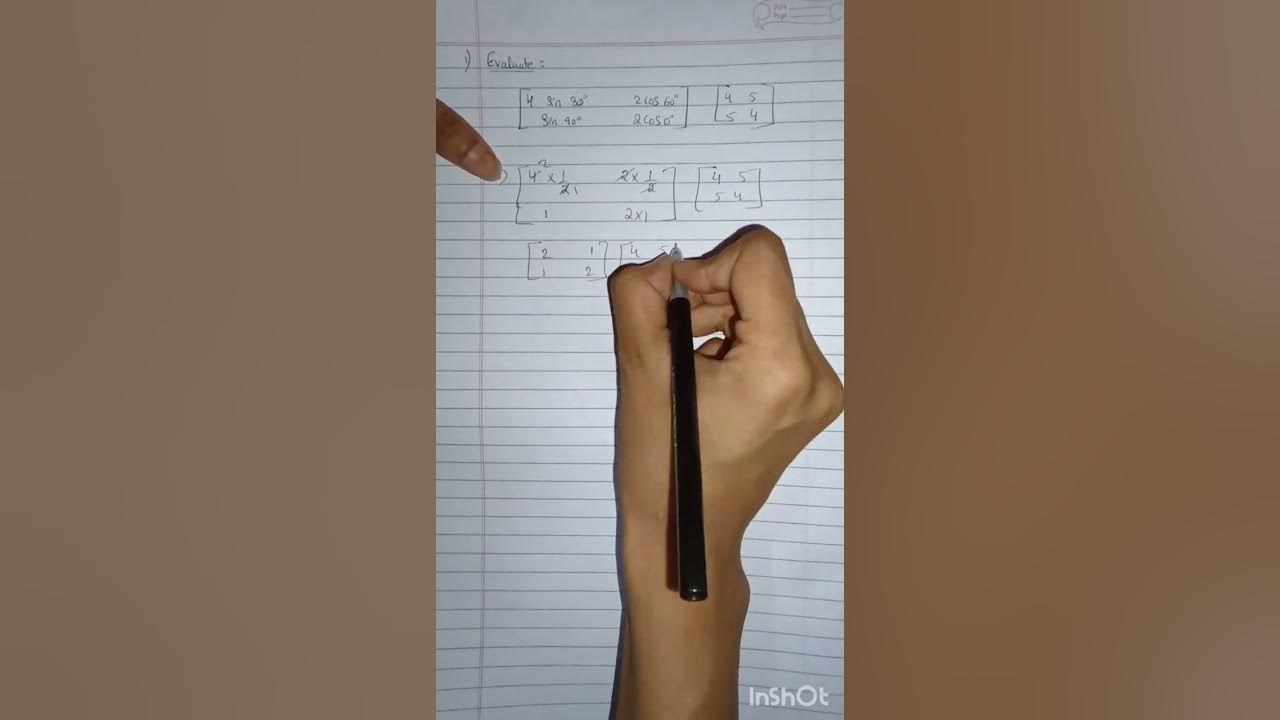 Date
Page
1) Evaluate :
[4 sin 30° 2cos 60°] [4 5]
[sin 90° 2cos0°] [5 4]
[4 2 × 1/2 1 2 × 1/2] [4 5]
[1 2×1] [5 4]
[2 1] [4 5
[1 2]
InShOt